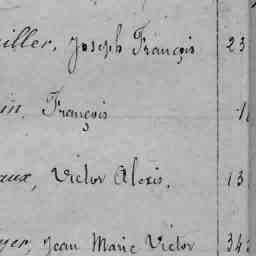 iller, Joseph François 23
in, François
aux, Victor Alexis, 13
yer, Jean Marie Victor 343